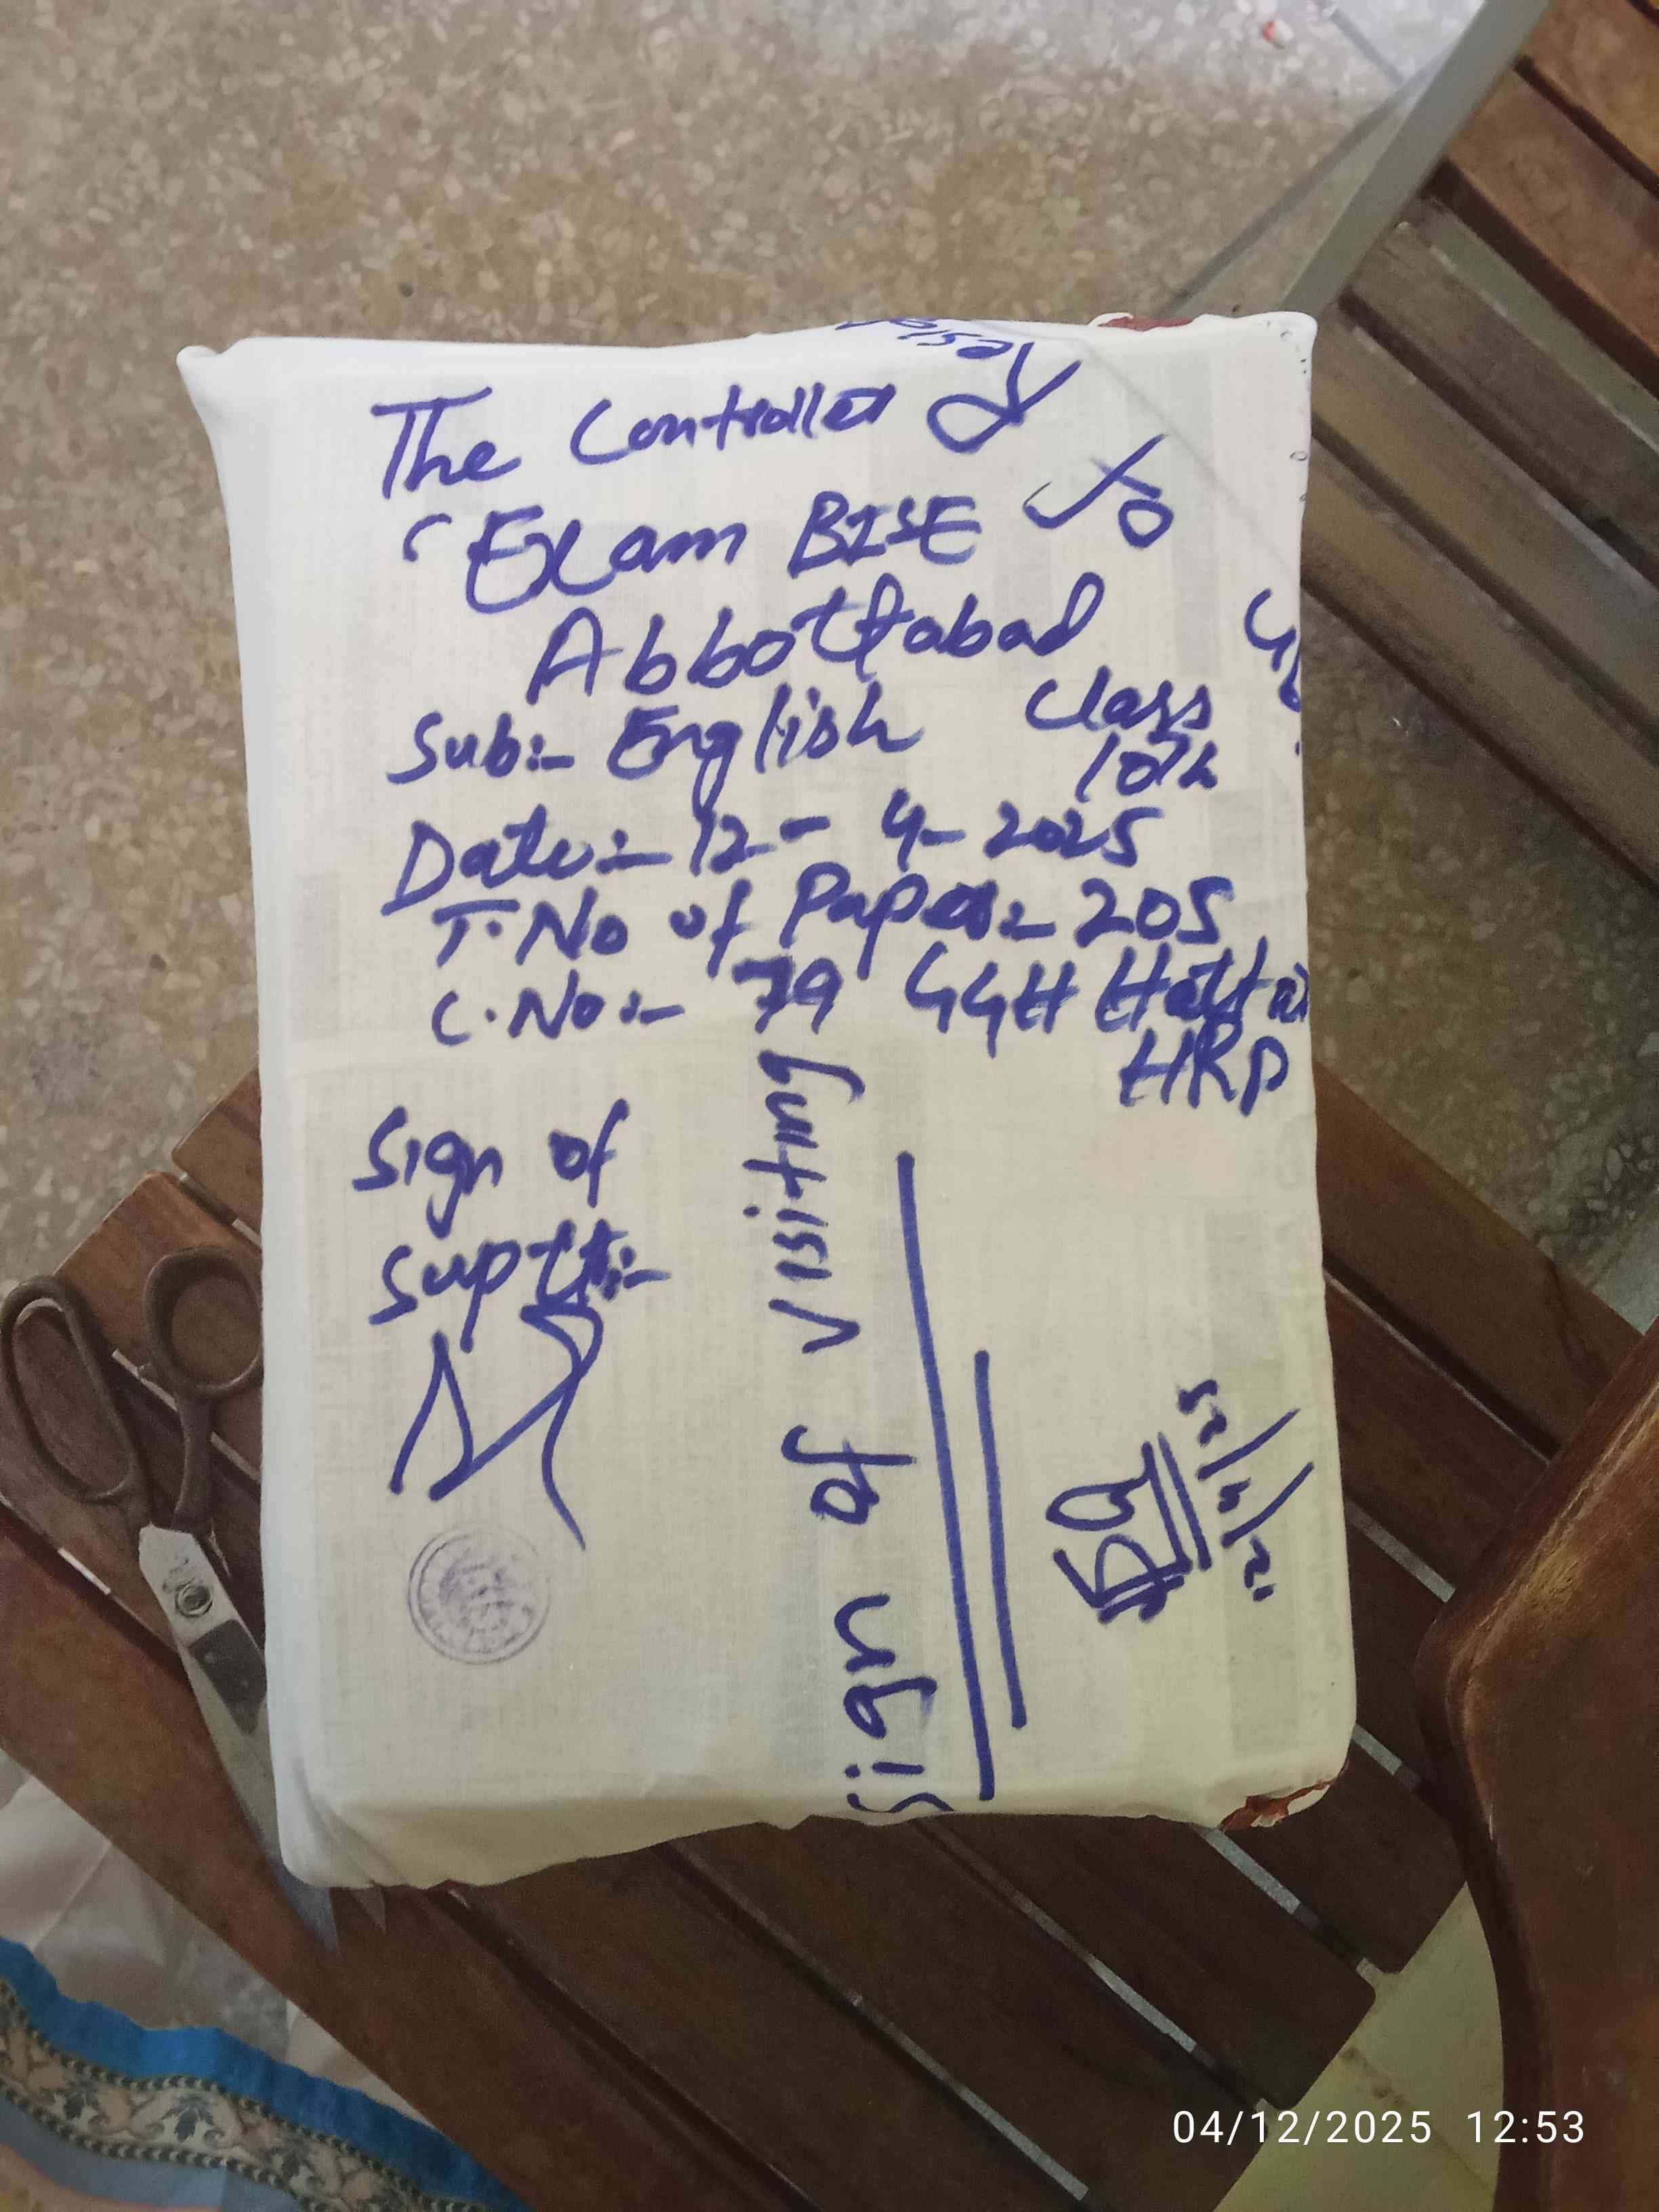 The Controller of
Exam BISE
Abbottabad
Sub:- English Class
10th
Date:- 12-4-2025
T.No of Paper:- 205
C.No:- 79 GGH
HRP
Sign of
Suptt:-
Sign of visiting
12/4/25
04/12/2025 12:53